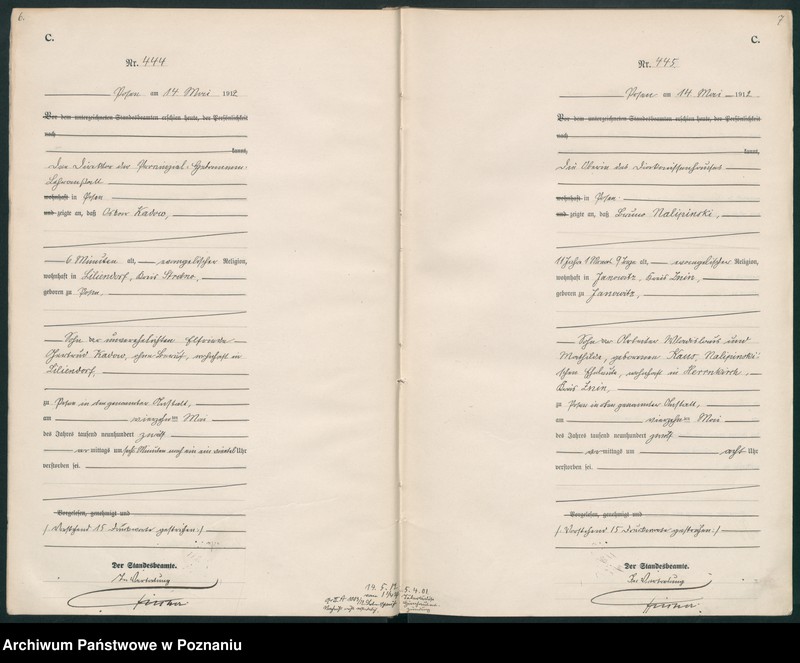 6.
C.
Nr. 444
Posen am 14 Mai 1912
Vor dem unterzeichneten Standesbeamten erschien heute, der Persönlichkeit
nach
kannt,
Der Direktor der Provinzial-Hebammen-
Lehranstalt
wohnhaft in Posen
und zeigte an, daß Oskar Kadow,
6 Minuten alt, evangelischer Religion,
wohnhaft in Liliendorf, Kreis
geboren zu Posen,
Sohn der unverehelichten Elfriede
Gertrud Kadow, ohne Beruf, wohnhaft in
Liliendorf,
zu Posen in der genannten Anstalt,
am vierzehnten Mai
des Jahres tausend neunhundert zwölf
vormittags um Minuten nach ein ein viertel Uhr
verstorben sei.
Vorgelesen, genehmigt und
/Vorstehend 15 Druckworte gestrichen:/
Der Standesbeamte.
In Vertretung
7
C.
Nr. 445
Posen am 14 Mai 1912
Vor dem unterzeichneten Standesbeamten erschien heute, der Persönlichkeit
nach
kannt,
Die Oberin des Diakonissenhauses
wohnhaft in Posen
und zeigte an, daß Bruno Nalipinski,
11 Jahre 1 Monat 9 Tage alt, evangelischer Religion,
wohnhaft in Janowitz, Kreis Znin,
geboren zu Janowitz,
Sohn der Arbeiter Wladislaus und
Mathilde, geborenen Kaus, Nalipinski-
schen Eheleute, wohnhaft in Herrnkirch,
Kreis Znin,
zu Posen in der genannten Anstalt,
am vierzehnten Mai
des Jahres tausend neunhundert zwölf
vormittags um acht Uhr
verstorben sei.
Vorgelesen, genehmigt und
/Vorstehend 15 Druckworte gestrichen:/
Der Standesbeamte.
In Vertretung
Archiwum Państwowe w Poznaniu